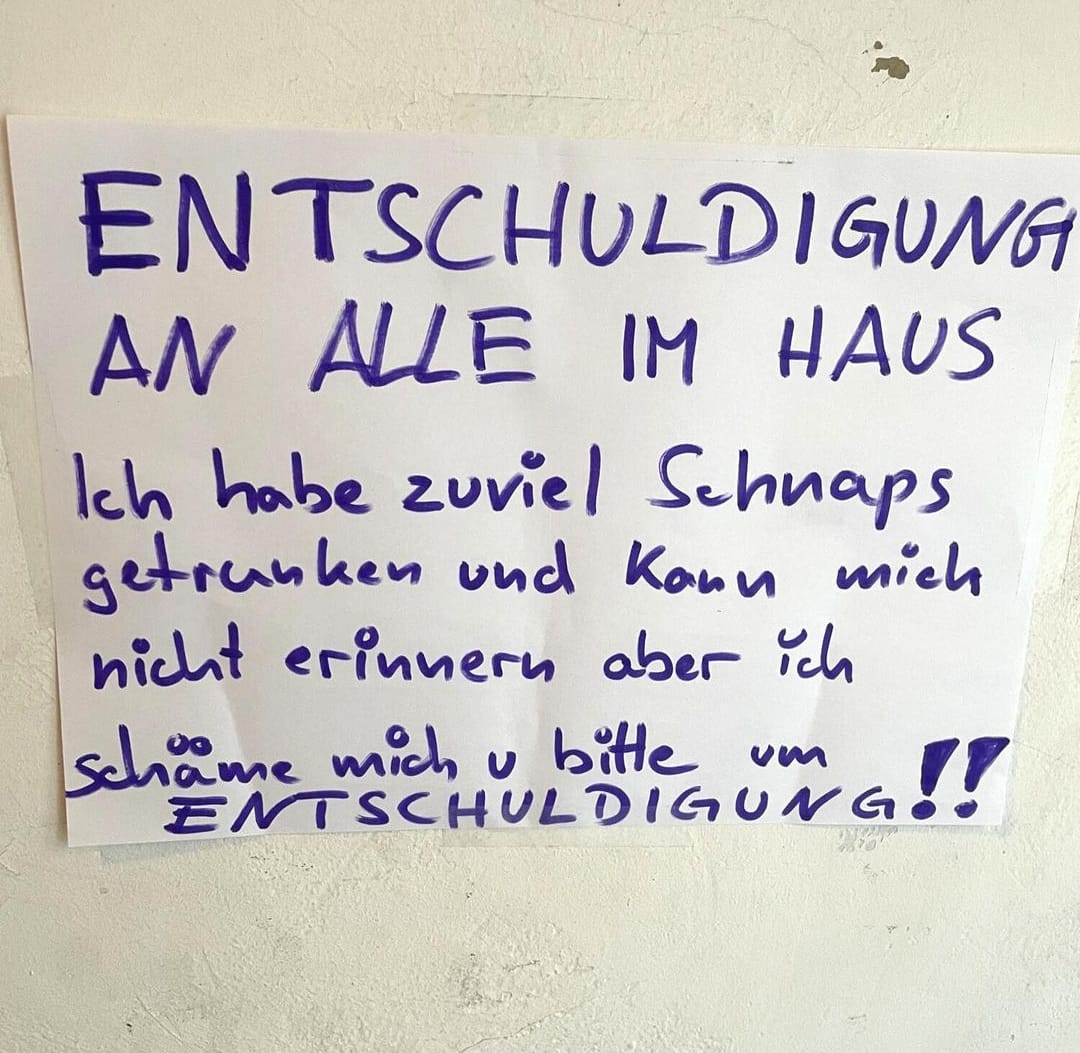 ENTSCHULDIGUNG
AN ALLE IM HAUS
Ich habe zuviel Schnaps
getrunken und kann mich
nicht erinnern aber ich
schäme mich u bitte um
ENTSCHULDIGUNG!!